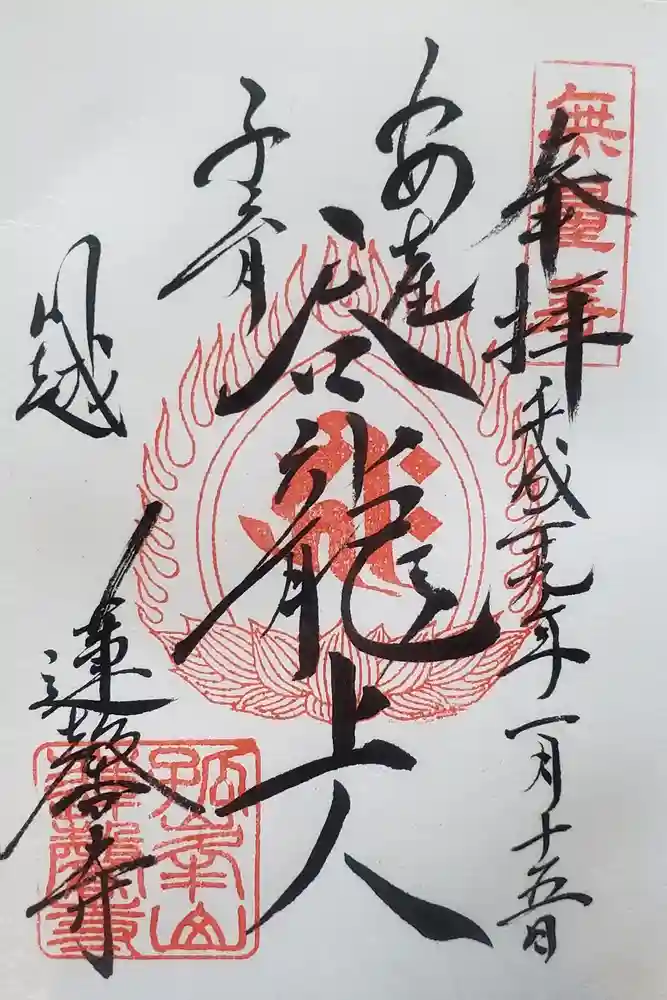 無量壽
奉拝
平成二十九年一月十五日
安産
呑龍上人
子育
川越
蓮馨寺
孤峯山
蓮馨寺